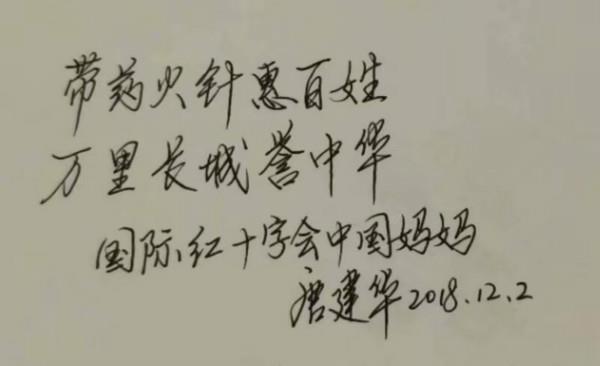 带药火针惠百姓
万里长城誉中华
国际红十字会中国妈妈
唐建华2018.12.2